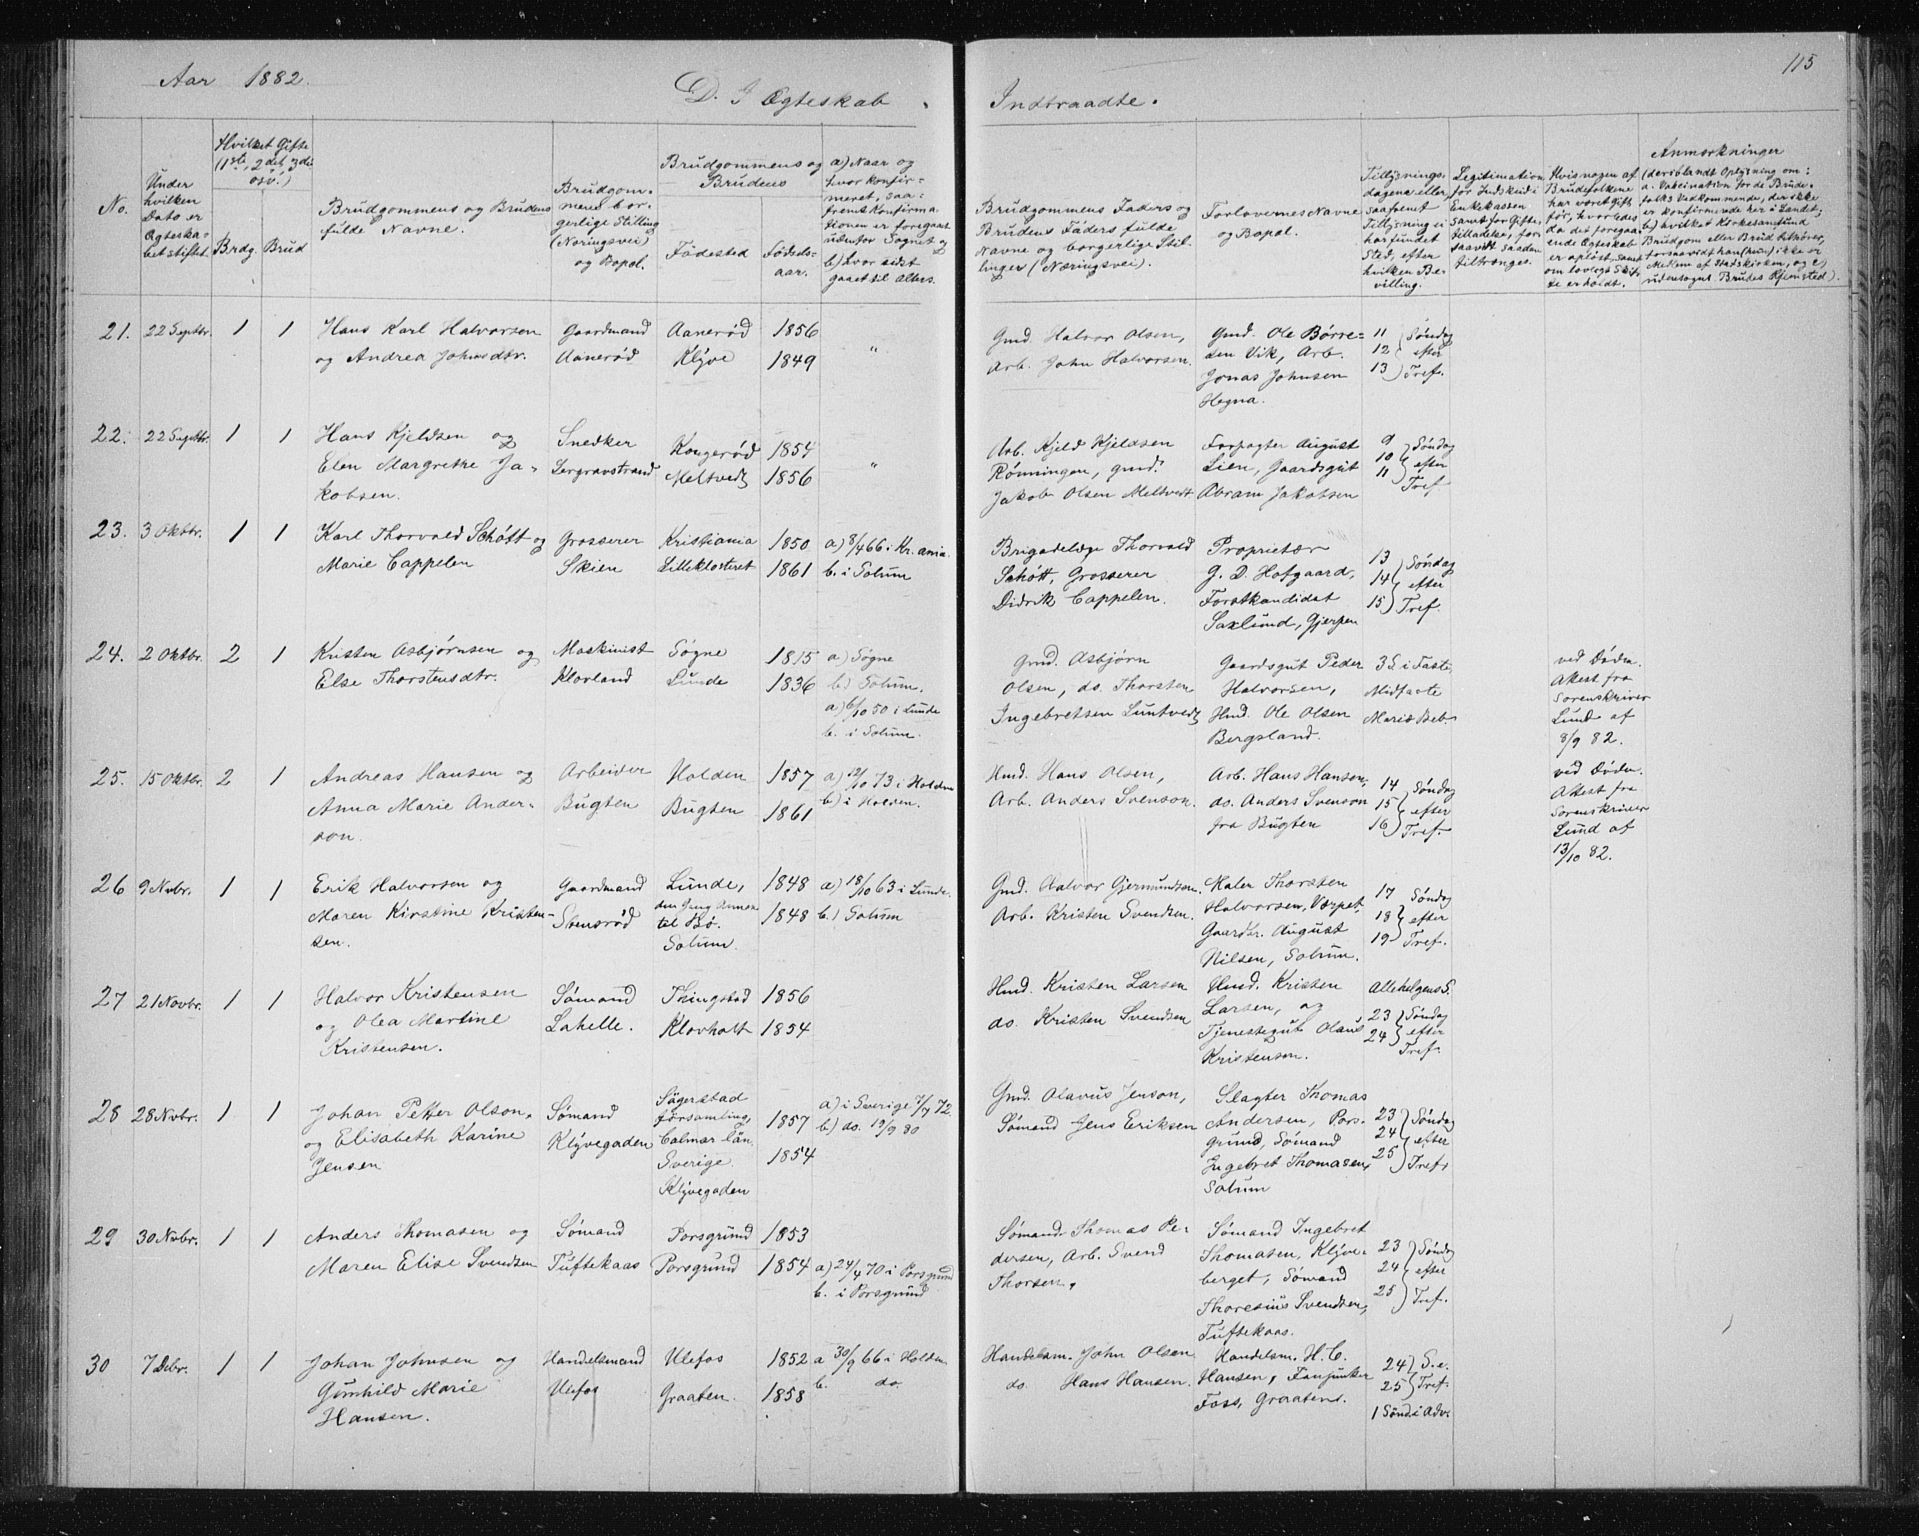 Aar 1882.
D. I Ægteskab
Indtraadte.
115
No.
Under hvilken Dato er Ægteskabet stiftet
Hvilket Gifte (1ste, 2det, 3die osv.)
Brdg. Brud
Brudgommens og Brudens fulde Navne.
Brudgommens borgerlige Stilling (Næringsvei) og Bopæl.
Brudgommens og Brudens
Fødested
Fødselsaar.
a) Naar og hvor konfirmeret, saafremt Konfirmationen er foregaaet udenfor Sognet og b) hvor sidst gaaet til Alters.
Brudgommens Faders og Brudens Faders fulde Navne og borgerlige Stillinger (Næringsvei).
Forlovernes Navne og Bopæl.
Tillysningsdagene eller, saafremt Tillysning ei har fundet Sted, efter hvilken Bevilling.
Legitimation for Indskud i Enkekassen samt for Giftetilladelse, forsaavidt saadan tiltrænges.
Hvis nogen af Brudefolkene har været gift før, hvorledes da det foregaaende Ægteskab er opløst, samt om lovligt Skifte er holdt.
Anmærkninger (deriblandt Oplysning om: a. Vaccination for de Brudefolks Vedkommende, der ikke er konfirmerede her i Landet; b) hvilket Kirkesamfund Brudgom eller Brud tilhører, forsaavidt han (hun) ikke er Medlem af Statskirken, og c) udensogns Brudes Hjemsted).
21. 22 Septbr. 1 1
Hans Karl Halvorsen
og Andrea Johnsdtr.
Gaardmand
Aanerød
Aanerød 1856
Klyve 1849
"
Gmd. Halvor Olsen,
Arb. John Halvorsen.
Gmd. Ole Børre-
sen Vik, Arb.
Jonas Johnsen
Hegna.
11
12 Søndag efter Tref.
13
22. 22 Septbr. 1 1
Hans Kjeldsen og
Elen Margrethe Ja-
kobsen.
Snedker
Kongerød 1854
Meltvedt 1856
"
Arb. Kjeld Kjeldsen
Rønningen, gmd.
Jakob Olsen Meltvedt
Forpagter August
Lien, Gaardsgut
Abram Jakobsen
9
10 Søndag efter Tref
11
23. 3 Oktbr. 1 1
Karl Thorvald Schøtt og
Marie Cappelen
Grosserer
Skien
Kristiania 1850
Lilleklosteret 1861
a) 8/4 66 i Kr.ania.
b. i Solum
Brigadelæge Thorvald
Schøtt, Grosserer
Didrik Cappelen.
Proprietær
G. D. Hofgaard,
Forstkandidat
Saxlund, Gjerpen
13
14 Søndag efter Tref.
15
24. 2 Oktbr. 2 1
Kristen Asbjørnsen og
Else Thorstensdtr.
Maskinist
Klovland
Søgne 1815
Lunde 1836
a) Søgne
b) Solum.
a) 6/10 50 i Lunde
b. i Solum.
Gmd. Asbjørn
Olsen, do. Thorsten
Ingebretsen Luntvedt
Gaardsgut Peder
Halvorsen,
Hmd. Ole Olsen
Bergsland.
3 S. i Faste,
Midfaste
Mariæ Beb.
ved Døden.
Attest fra
Sorenskriver
Lund af
8/9 82.
25. 15 Oktbr. 2 1
Andreas Hansen og
Anna Marie Ander-
son.
Arbeider
Bugten
Holden 1857
Bugten 1861
a) 12/10 73 i Holden
b) i Holden.
Hmd. Hans Olsen,
Arb. Anders Svenson.
Arb. Hans Hansen,
do. Anders Svenson
fra Bugten
14
15 Søndag efter Tref.
16
ved Døden.
Attest fra
Sorenskriver
Lund af
13/10 82.
26 9 Novbr. 1 1
Erik Halvorsen og
Maren Kirstine Kristen-
sen.
Gaardmand
Stensrød
Lunde,
til Bø. 1848
Solum. 1848
a) 18/10 63 i Lunde.
b.) Solum
Gmd. Halvor Gjermundsen.
Arb. Kristen Svendsen.
Maler Thorsten
Halvorsen, Værpet,
Gaardbr. August
Nilsen, Solum.
17
18 Søndag efter Tref.
19
27 21 Novbr. 1 1
Halvor Kristensen
og Olea Martine
Kristensen.
Sømand
Lahelle.
Thingstad 1856
Klovholt 1854
Hmd. Kristen Larsen
do. Kristen Svendsen
Hmd. Kristen
Larsen, og
Tjenestegut Olaus
Kristensen.
Allehelgens S.
23 Søndag efter Tref.
24
28 28 Novbr. 1 1
Johan Petter Olson
og Elisabeth Karine
Jensen
Sømand
Klyvegaden
Sägerstad
församling,
Calmar län, 1857
Sverige. 1854
Klyvegaden
a) i Sverige 7/7 72
b) do. 19/9 80
Gmd. Olavus Jenson,
Sømand Jens Eriksen
Slagter Thomas
Andersen, Pors-
grund, Sømand
Ingebret Thomasen,
Solum
23
24 Søndag efter Tref.
25
29 30 Novbr. 1 1
Anders Thomasen og
Maren Elise Svendsen
Sømand
Tuftekaas
Porsgrund 1853
Porsgrund 1854
a) 24/4 70 i Porsgrund
b. i Porsgrund
Sømand Thomas Pe-
dersen, Arb. Svend
Thorsen,
Sømand Ingebret
Thomasen, Klyve-
berget, Sømand
Thoresius Svendsen,
Tuftekaas.
23
24 Søndag efter Tref.
25
30 7 Debr. 1 1
Johan Johnsen og
Gunhild Marie
Hansen.
Handelsmand
Ulefos
Ulefos 1852
Graaten. 1858
a 30/9 66 i Holden
b. do.
Handelsm. John Olsen
do. Hans Hansen.
Handelsm. H. C.
Hansen, Fanejunker
Foss, Graaten.
24 S. e.
25 Tref.
1 Sønd. i Adv.